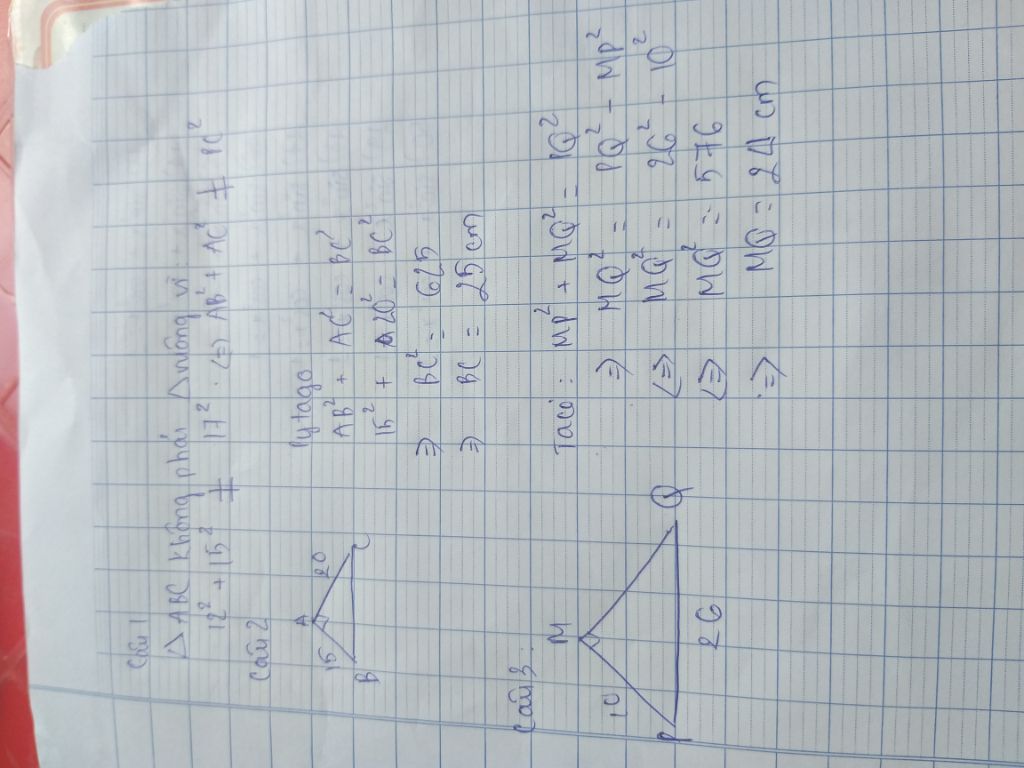 Câu 1
△ ABC không phải △ vuông vì
12² + 15² ≠ 17² . <=> AB² + AC² ≠ BC²
Câu 2
A
15
20
B
C
Pytago
AB² + AC² = BC²
15² + 20² = BC²
=> BC² = 625
=> BC = 25 cm
Câu 3:
M
10
P
Q
26
Ta có: MP² + MQ² = PQ²
=> MQ² = PQ² - MP²
<=> MQ² = 26² - 10²
<=> MQ² = 576
=> MQ = 24 cm